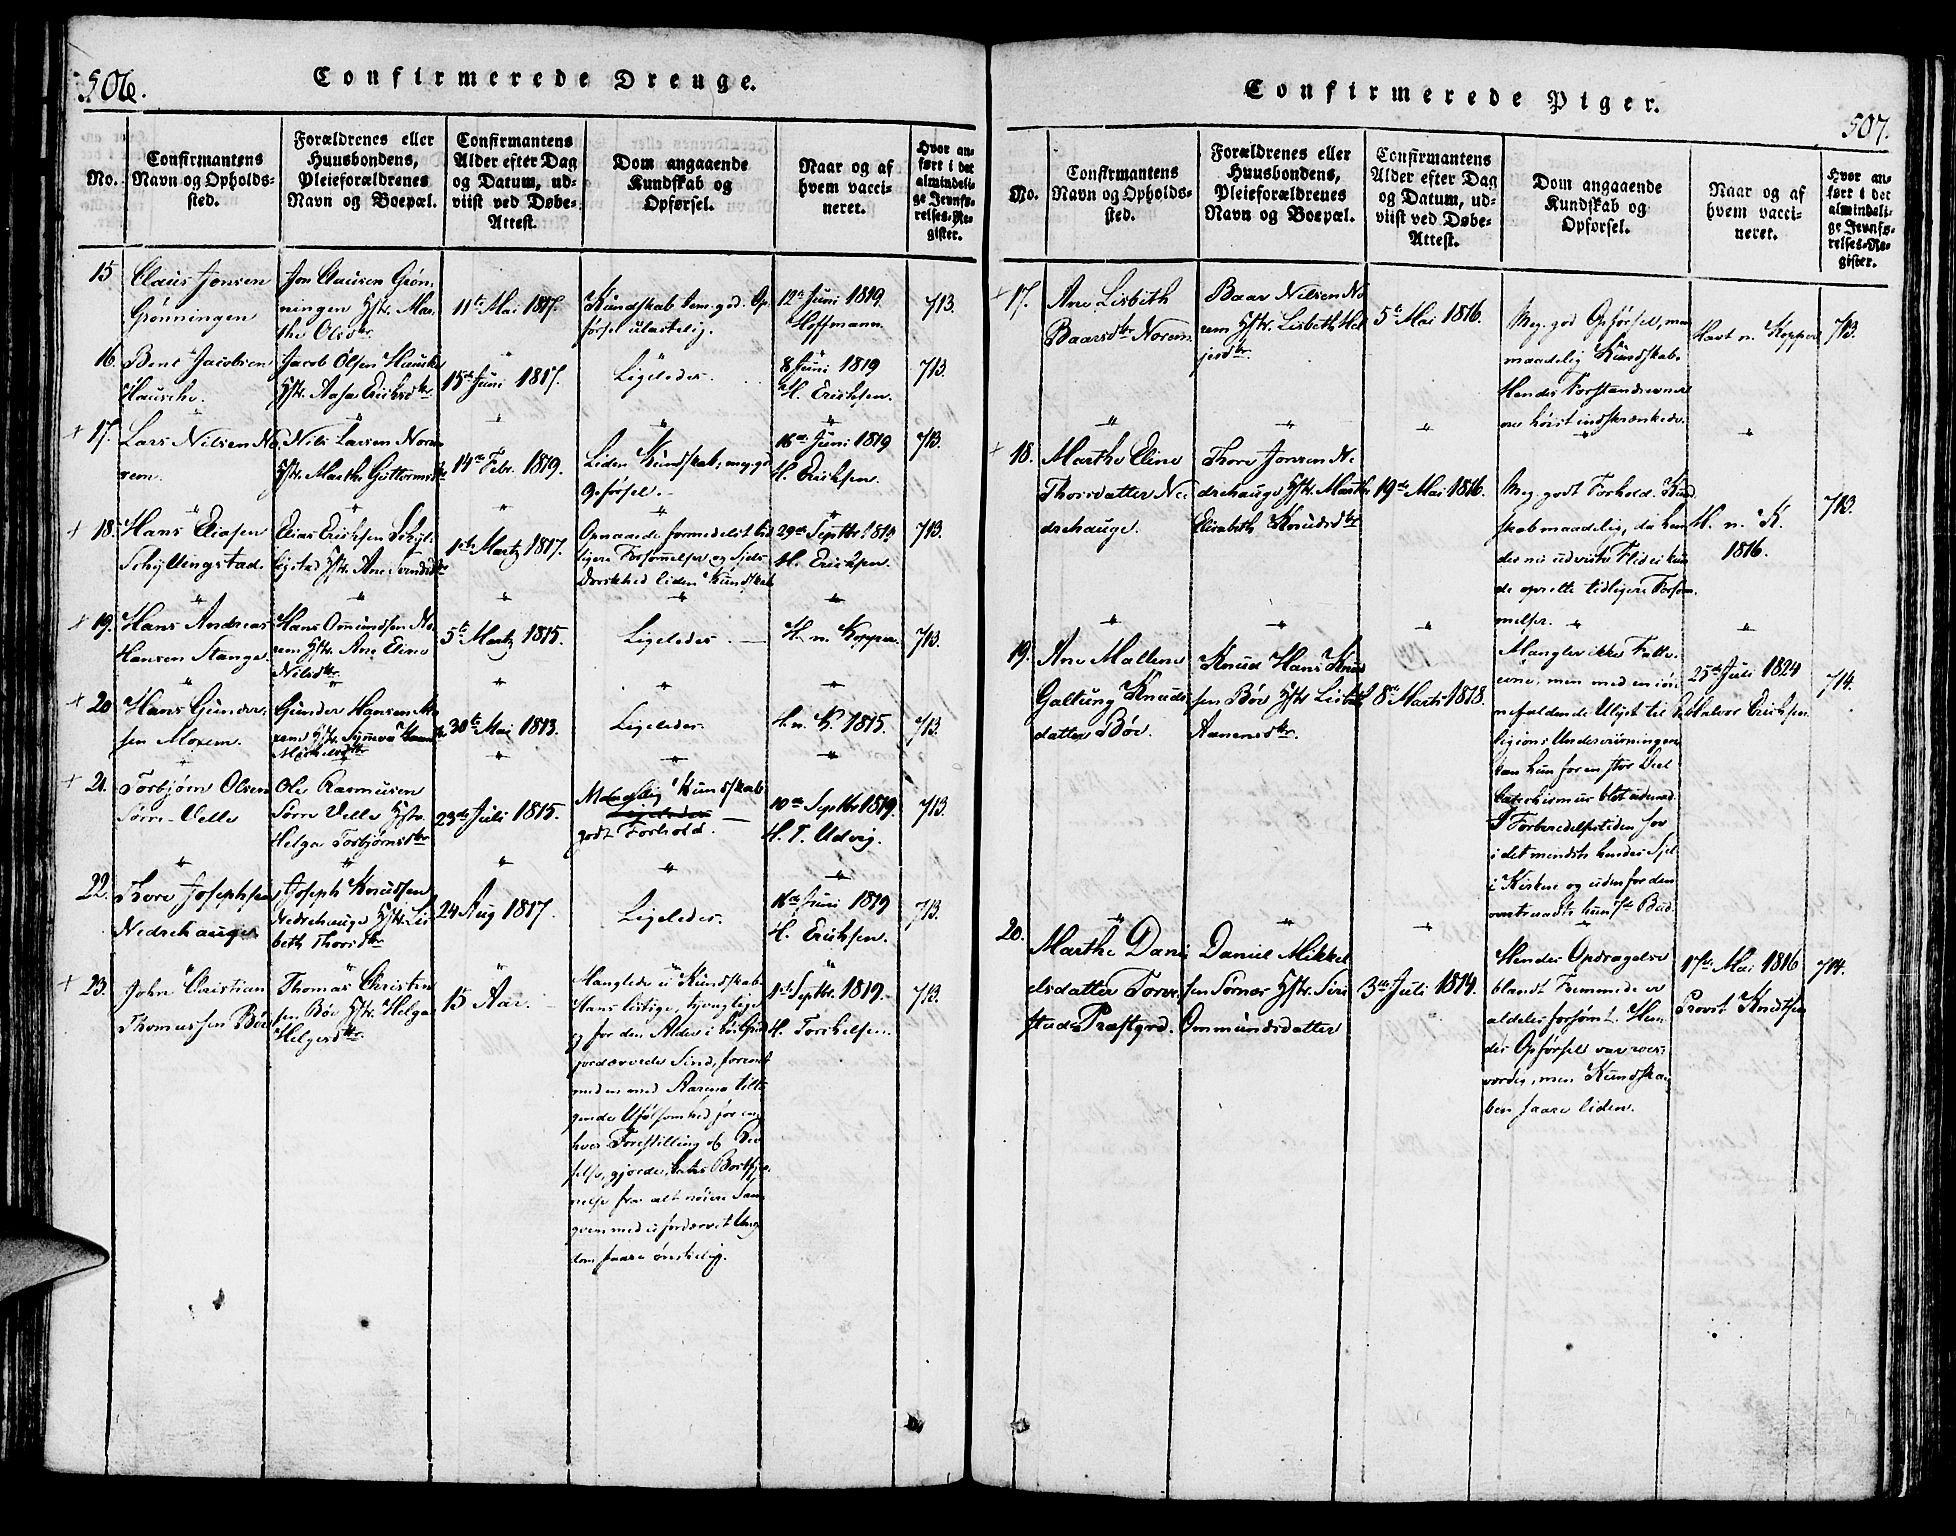 506.
Confirmerede Drenge.
No.
Confirmantens
Navn og Opholds-
sted.
Forældrenes eller
Huusbondens,
Pleieforældrenes
Navn og Boepæl.
Confirmantens
Alder efter Dag
og Datum, ud-
viist ved Døbe-
Attest.
Dom angaaende
Kundskab og
Opførsel.
Naar og af
hvem vacci-
neret.
Hvor an-
ført i det
almindeli-
ge Jevnfø-
relses-Re-
gister.
15
Claus Jonsen
Grønningen
Jon Clausen Grøn-
ningen Hstr. Mar-
the Olsdtr
11te Mai 1817.
Kundskab tem. god. Op
førsel ulastelig.
12te Juni 1819
Hoffmann.
713.
16.
Bent Jacobsen
Hausche.
Jacob Olsen Hausche
Hstr. Aasa Ericksdtr
15de Juni 1817.
Ligeledes.
8 Juni 1819
H. Ericksen.
713.
+ 17.
Lars Nilsen No-
rem.
Nils Larsen Norem
Hstr. Marthe Guttormsdtr
14de Febr. 1819.
Liden Kundskab, meg. god
Opførsel.
16de Juni 1819
H. Ericksen.
713.
+ 18.
Hans Eliasen
Schyllingstad.
Elias Ericksen Schyl-
ligstad Hstr. Ane Svendsdtr
1ste Martz 1817.
Opnaaede formedelst tid
ligere Forsømmelse og Sjels
Dorskhed liden Kundskab
29de Septbr. 1819
H. Ericksen.
713.
+ 19.
Hans Andreas
Hansen Stange.
Hans Omundsen No-
rem Hstr. Ane Eline
Nilsdtr
5te Martz 1815.
Ligeledes.
H. n. Kopper.
713.
+ 20
Hans Gunder-
sen Morem.
Gunder Hansen Mo-
rem Hstr. Synneva
30te Mai 1813.
Ligeledes.
H. n. K. 1815.
713.
+ 21.
Torbjørn Olsen
Sørre-Velle
Ole Rasmusen
Sørre Velle Hstr.
Helga Torbjørnsdtr
23de Juli 1815.
Maadelig Kundskab
Ligeledes
godt Forhold.
10de Septbr 1819.
H. T. Udvig.
713.
22.
Thore Josephsen
Nedrehauge
Joseph Knudsen
Nedrehauge Hstr. Lis-
beth Thorsdtr
24 Aug 1817.
Ligeledes.
16de Juni 1819
H. Ericksen.
713.
+ 23.
John Christian
Thomassen Bøe
Thomas Christen
sen Bøe Hstr. Helga
Helgesdtr.
15 Aar.
Manglede ei Kundskab
Hans listige,
for den Alder i
fordærvede Sind, forenet
med en med Aarene tilta
gende Ufølsomhed for en
hver Forestilling
gjorde, hans Bortfjer
nelse fra alt nøiere Sam
qvem med ufordærvet Ung
dom saare ønskelig.
1ste Septbr. 1819.
H. Torkelsen.
713.
Confirmerede Piger.
507.
No.
Confirmantens
Navn og Opholds-
sted.
Forældrenes eller
Huusbondens,
Pleieforældrenes
Navn og Boepæl.
Confirmantens
Alder efter Dag
og Datum, ud-
viist ved Døbe-
Attest.
Dom angaaende
Kundskab og
Opførsel.
Naar og af
hvem vacci-
neret.
Hvor an-
ført i det
almindeli-
ge Jevnfø-
relses-Re-
gister.
+ 17.
Ane Lisbeth
Baarsdtr Norem
Baar Nilsen No
rem Hstr. Lisbeth Hel
jesdtr.
5te Mai 1816.
Meg. god Opførsel, men
maadelig Kundskab.
Hendes Forstandsevner
ere høist indskrænkede.
Havt n. Kopper
713.
+ 18.
Marthe Eline
Thorsdatter Ne-
drehauge.
Thore Jonsen Ne
drehauge Hstr. Marthe
Elisabeth Knudsdtr
19de Mai 1816.
Meg. godt Forhold. Kund
skab maadelig, da hen
des nu udviste Flid ei kun
de oprette tidligere Forsøm
melse.
H. n. K.
1816.
713.
19.
Ane Mallene
Galtung Knuds
datter Bøe.
Knud Hans Knud
sen Bøe Hstr. Lisbeth
Aanensdtr.
8de Marts 1818.
Mangler ikke Fatte-
evne, men med en iøi-
nefaldende Ulyst til Re
ligions Underviisningen
kan hun for en stor Deel
Catechismus blot udenad.
I Forberedelsestiden sov
i det mindste hendes Sjel
i Kirken og uden for den
overtraadte hun 7de Bud.
25de Juli 1824
Halvor Ericksen.
714.
20.
Marthe Dani
elsdatter Torve-
stads Præstgrd.
Daniel Mikkel
sen Sørnæs Hstr. Siri
Ommundsdatter
3die Juli 1814.
Hendes Opdragelse
blandt Fremmede er
aldeles forsømt. Hen
des Opførsel var roes-
værdig, men Kundska-
ben saare liden.
17de Mai 1816
Provst Knudsen
714.